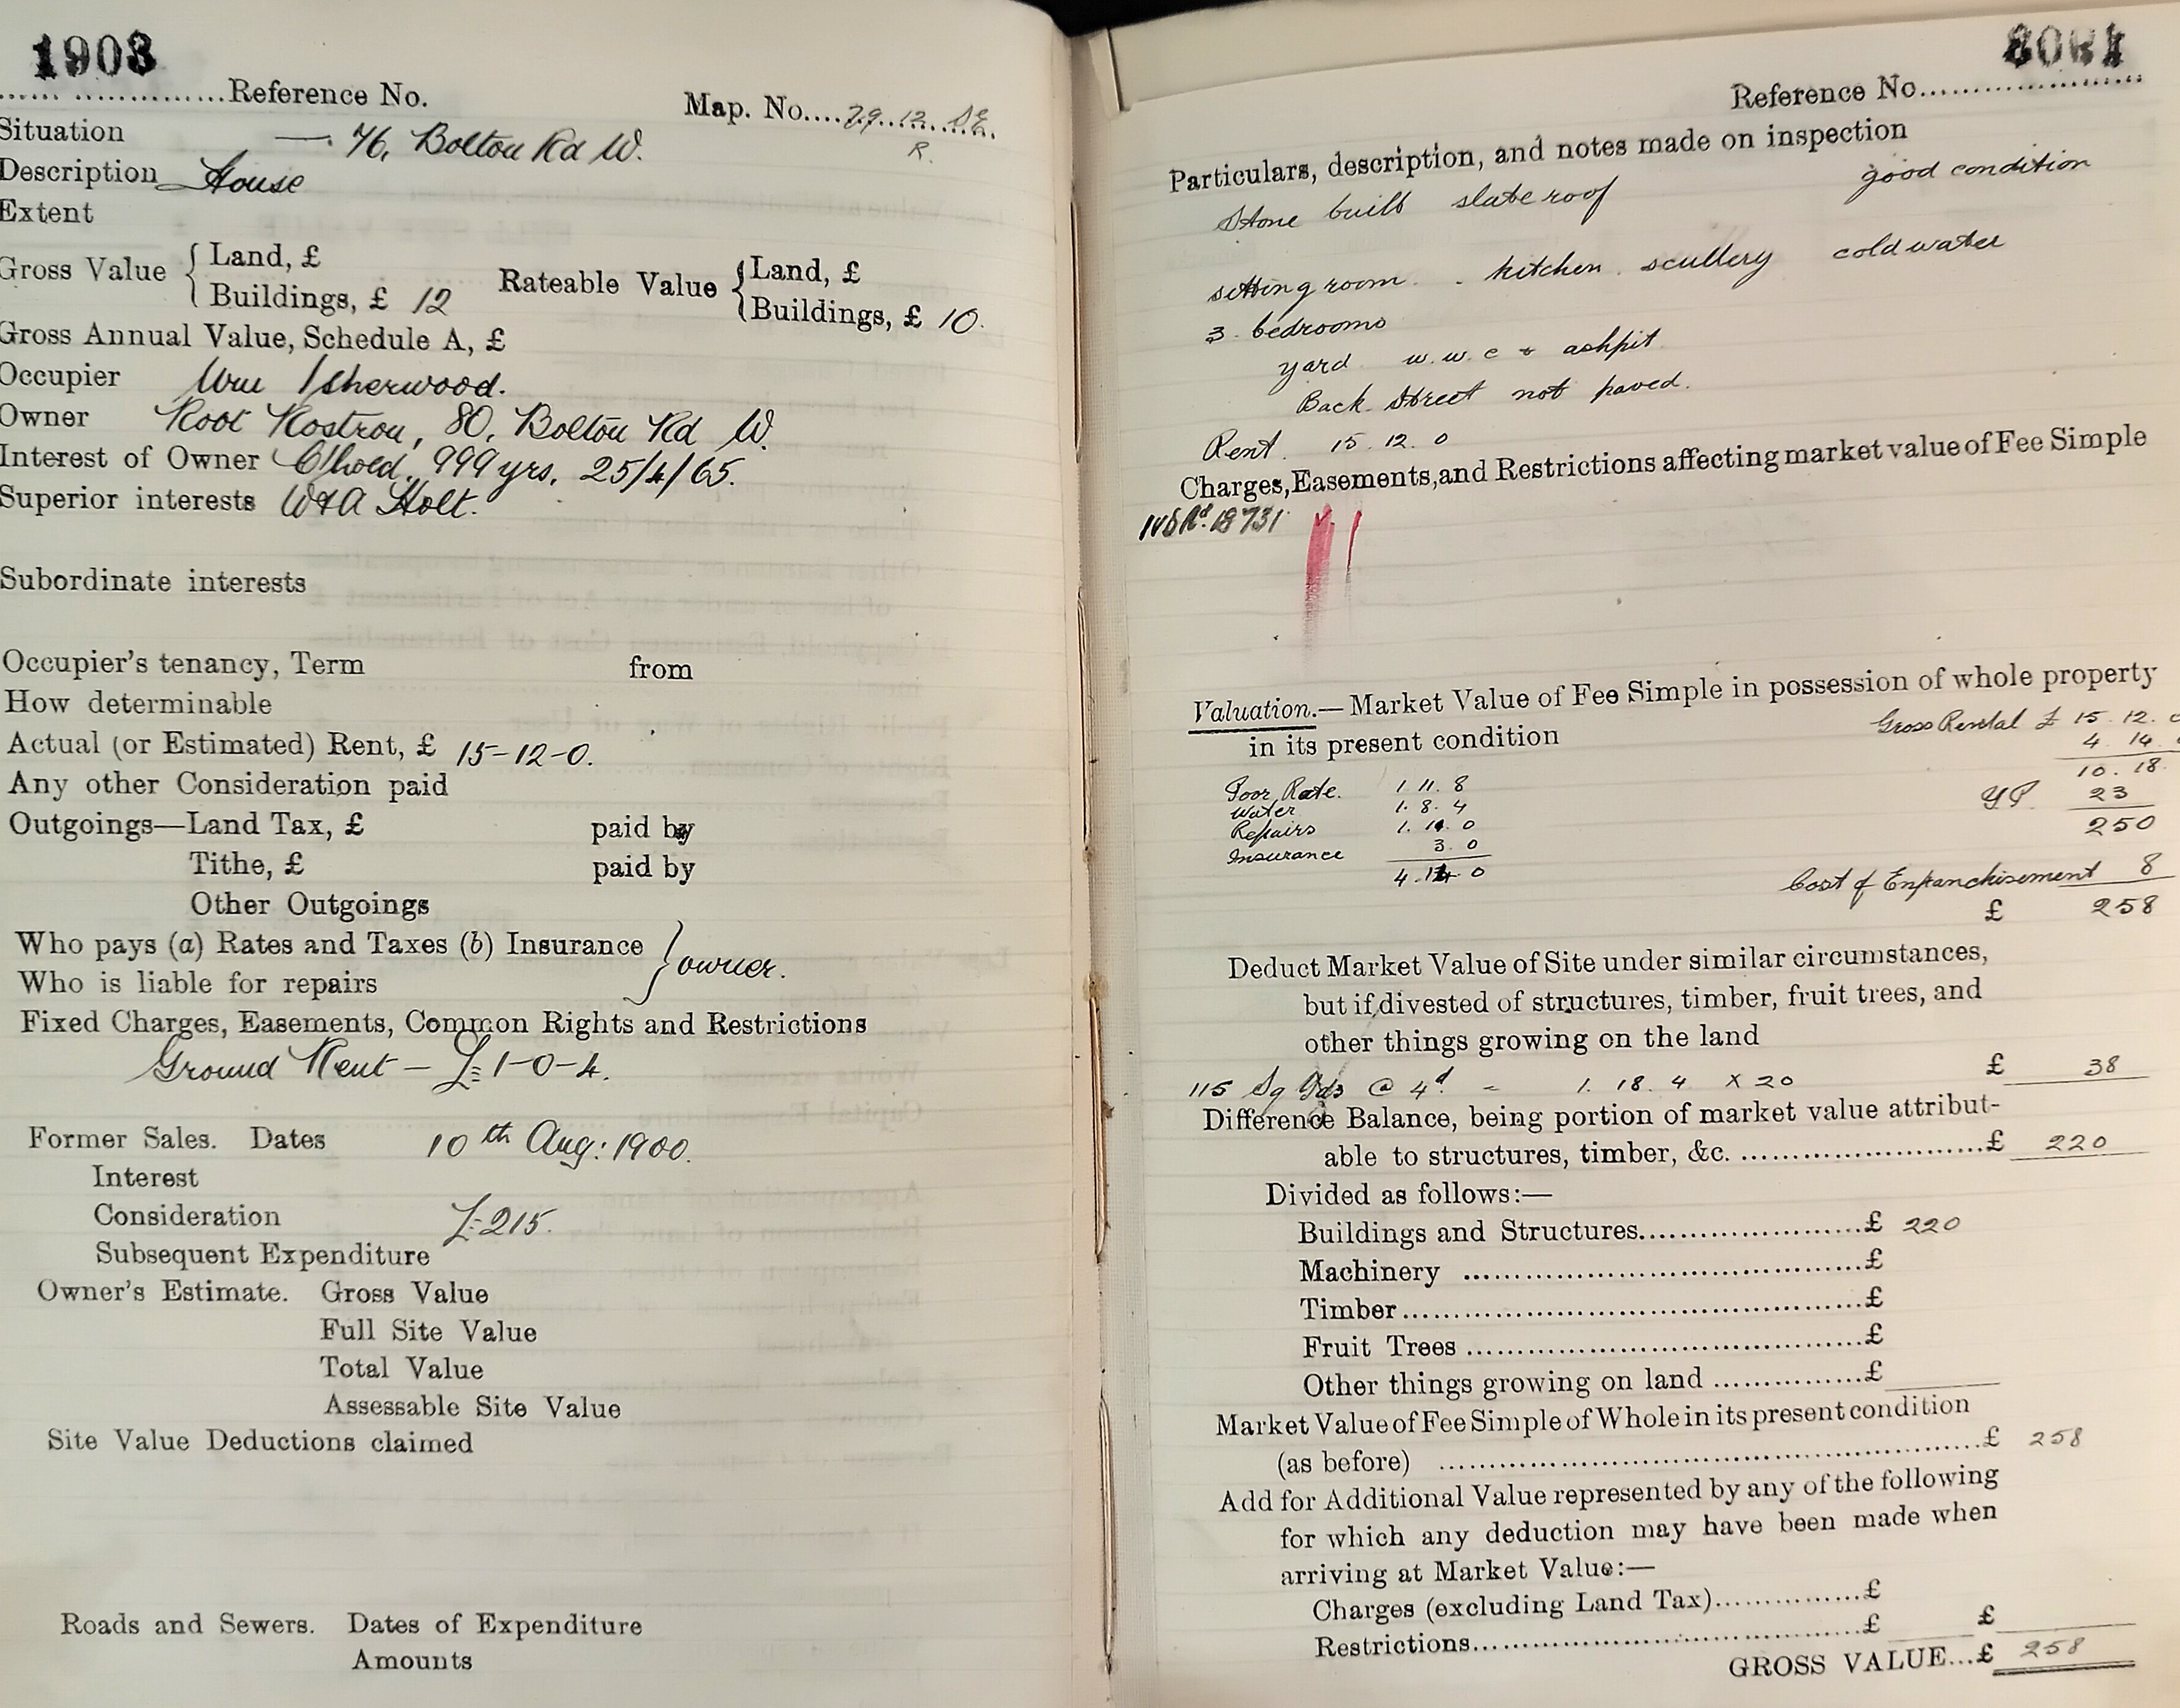 1903
Reference No.
Map. No.... 79.12. SE
R.
Situation — 76, Bolton Rd W.
Description House
Extent
Gross Value { Land, £
Buildings, £ 12
Rateable Value { Land, £
Buildings, £ 10.
Gross Annual Value, Schedule A, £
Occupier Wm Isherwood.
Owner Robt Rostron, 80, Bolton Rd W.
Interest of Owner L/hold, 999 yrs, 25/4/65.
Superior interests W & A Holt.
Subordinate interests
Occupier's tenancy, Term from
How determinable
Actual (or Estimated) Rent, £ 15-12-0.
Any other Consideration paid
Outgoings—Land Tax, £ paid by
Tithe, £ paid by
Other Outgoings
Who pays (a) Rates and Taxes (b) Insurance
Who is liable for repairs } owner.
Fixed Charges, Easements, Common Rights and Restrictions
Ground Rent – £1-0-4.
Former Sales. Dates 10th Aug: 1900.
Interest
Consideration £215.
Subsequent Expenditure
Owner's Estimate. Gross Value
Full Site Value
Total Value
Assessable Site Value
Site Value Deductions claimed
Roads and Sewers. Dates of Expenditure
Amounts
Reference No.
Particulars, description, and notes made on inspection
Stone built slate roof good condition
sitting room. kitchen. scullery cold water
3 bedrooms
yard w.w.c & ashpit
Back Street not paved.
Rent. 15. 12. 0
Charges, Easements, and Restrictions affecting market value of Fee Simple
Valuation.—Market Value of Fee Simple in possession of whole property
in its present condition
Gross Rental £ 15. 12.
4. 14.
10. 18.
YP 23
250
Poor Rate. 1. 11. 8
Water 1. 8. 4
Repairs 1. 11. 0
Insurance 3. 0
4. 14. 0
Cost of Enfranchisement 8
£ 258
Deduct Market Value of Site under similar circumstances,
but if divested of structures, timber, fruit trees, and
other things growing on the land
115 Sq Yds @ 4d = 1. 18. 4 x 20 £ 38
Difference Balance, being portion of market value attribut-
able to structures, timber, &c. £ 220
Divided as follows:—
Buildings and Structures £ 220
Machinery £
Timber £
Fruit Trees £
Other things growing on land £
Market Value of Fee Simple of Whole in its present condition
(as before) £ 258
Add for Additional Value represented by any of the following
for which any deduction may have been made when
arriving at Market Value:—
Charges (excluding Land Tax) £
Restrictions £ £
GROSS VALUE...£ 258